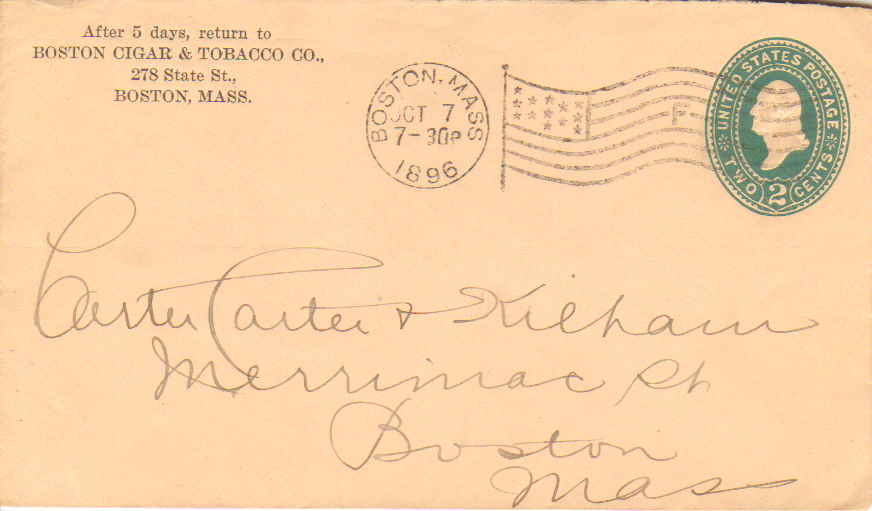 After 5 days, return to
BOSTON CIGAR & TOBACCO CO.,
278 State St.,
BOSTON, MASS.
BOSTON, MASS
OCT 7
7-30P
1896
UNITED STATES POSTAGE
TWO 2 CENTS
Carter Carter & Kilham
Merrimac St
Boston
Mass